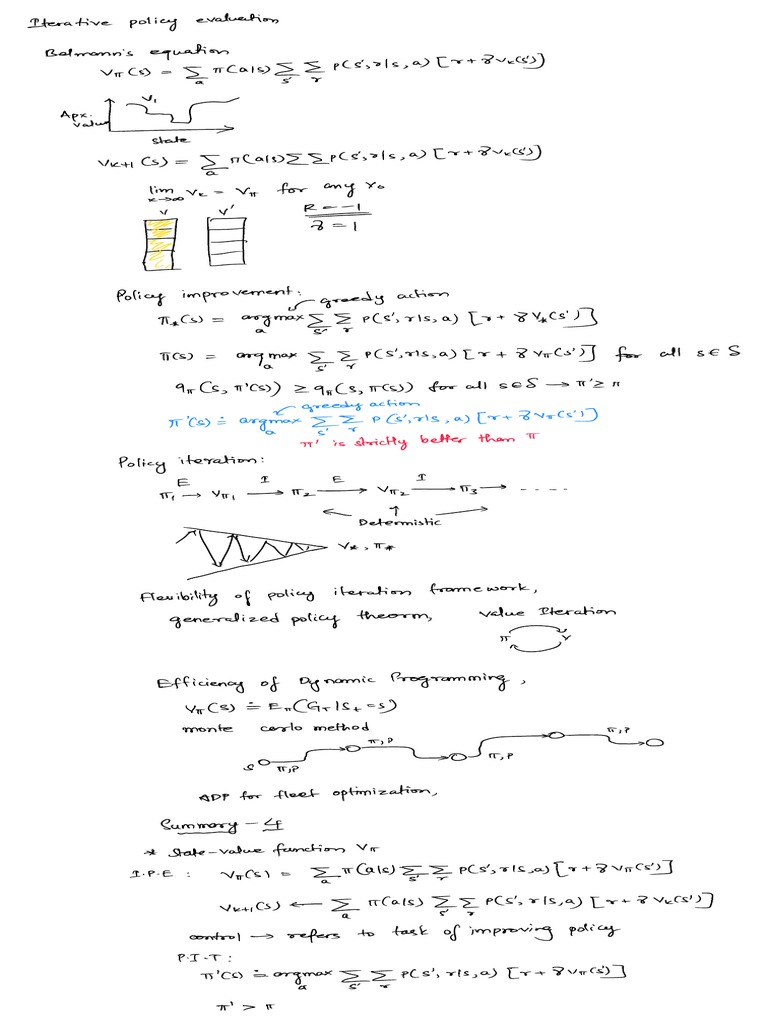 Iterative policy evaluation
Belmann's equation
Vπ(s) = Σ_a π(a|s) Σ_s' Σ_r P(s',r|s,a) [r+γVk(s')]
V1
Apx. value
state
Vk+1(s) = Σ_a π(a|s) Σ Σ P(s',r|s,a) [r+γVk(s')]
lim_k→∞ Vk = Vπ for any V0
V V' R = -1
γ = 1
Policy improvement:
greedy action
π*(s) = argmax_a Σ_s' Σ_r P(s',r|s,a) [r+γV*(s')]
π(s) = argmax_a Σ_s' Σ_r P(s',r|s,a) [r+γVπ(s')] for all s∈S
qπ(s,π'(s)) ≥ qπ(s,π(s)) for all s∈S → π' ≥ π
greedy action
π'(s) ≐ argmax_a Σ_s' Σ_r P(s',r|s,a) [r+γVπ(s')]
π' is strictly better than π
Policy iteration:
E I E I
π1 → Vπ1 → π2 → Vπ2 → π3 → ....
← ↑ →
Determistic
V*, π*
Flexibility of policy iteration framework,
generalized policy theorm, Value Iteration
π V
Efficiency of Dynamic Programming,
Vπ(s) ≐ Eπ(GT|St=s)
monte carlo method
π,P
π,P
s π,P
π,P
ADP for fleet optimization,
Summary - L4
* State-value function Vπ
I.P.E : Vπ(s) = Σ_a π(a|s) Σ_s' Σ_r P(s',r|s,a) [r+γVπ(s')]
Vk+1(s) ← Σ_a π(a|s) Σ_s' Σ_r P(s',r|s,a) [r+γVk(s')]
control → refers to task of improving policy
P.I.T :
π'(s) ≐ argmax_a Σ_s' Σ_r P(s',r|s,a) [r+γVπ(s')]
π' > π